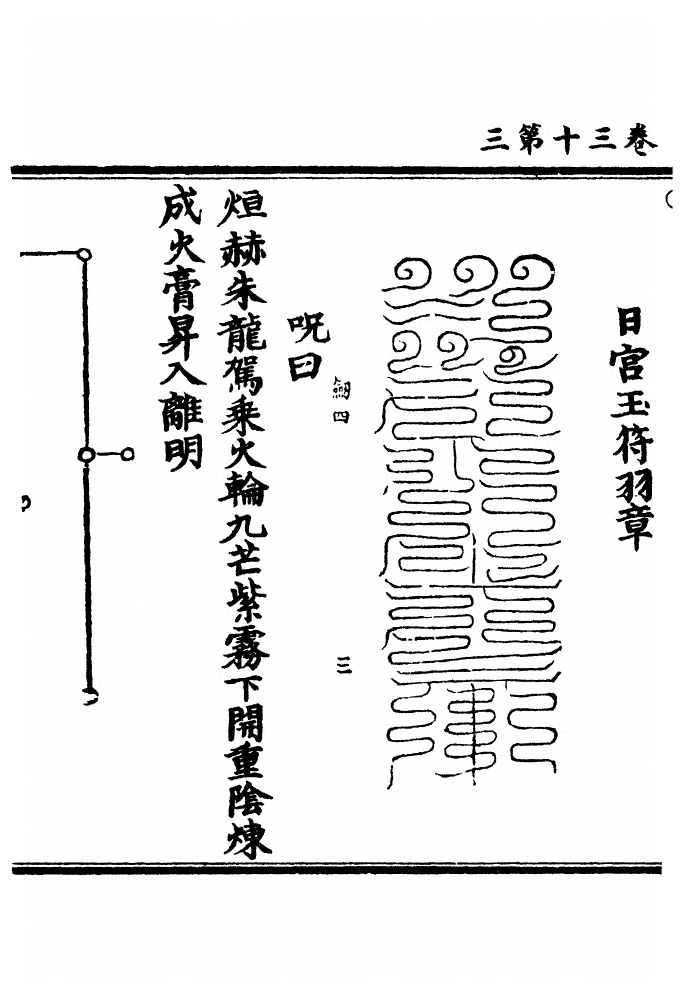 三第十三卷
日宮玉符羽章
劒四
三
呪曰
烜赫朱龍駕乘火輪九芒紫霧下開重陰煉
成火膏昇入離明